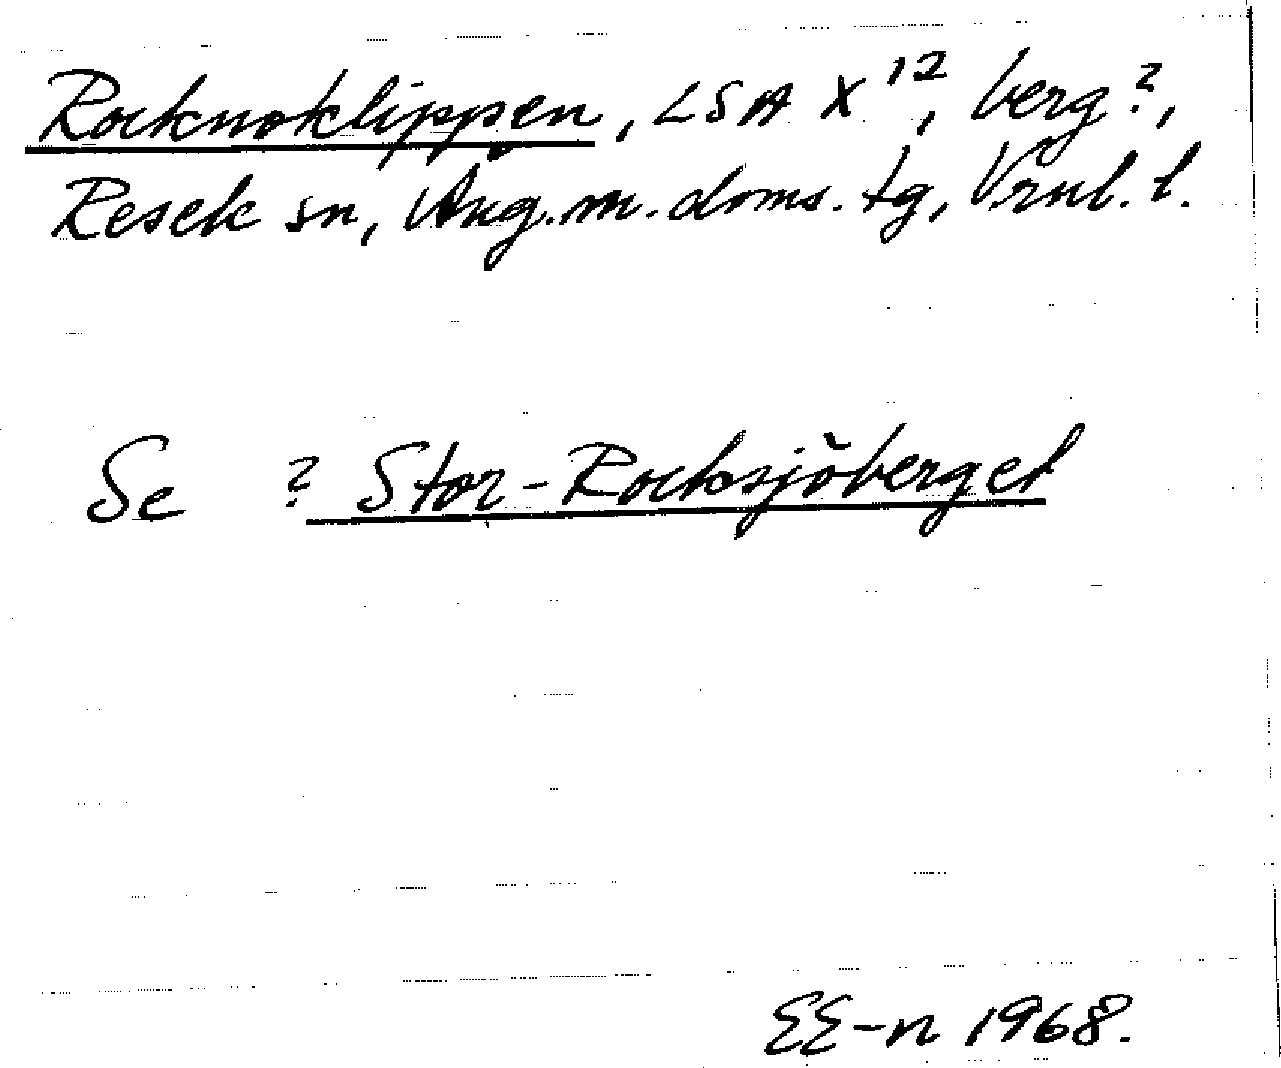 Rocknoklippen, LSA X¹², berg?,
Resele sn, Ång.m. doms. tg, Vrnl. l.
Se ? Stor-Rocksjöberget
EE-n 1968.